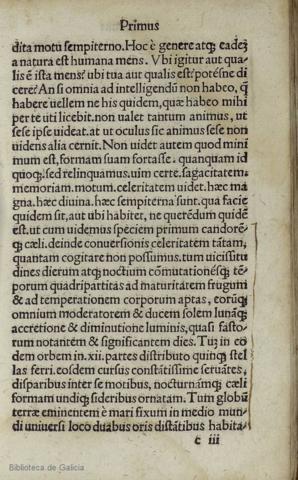 Primus
dita motu sempiterno. Hoc ē genere atq; eadeʒ
a natura est humana mens. Vbi igitur aut qua-
lis ē ista mens? ubi tua aut qualis est? potésne di
cere? An si omnia ad intelligendū non habeo, q̄
habere uellem ne his quidem, quæ habeo mihi
per te uti licebit. non ualet tantum animus, ut
sese ipse uideat. at ut oculus sic animus sese non
uidens alia cernit. Non uidet autem quod mini
mum est, formam suam fortasse. quanquam id
quoq;. sed relinquamus. uim certe. sagacitatem.
memoriam. motum. celeritatem uidet. hæc ma
gna. hæc diuina. hæc sempiterna sunt. qua facie
quidem sit, aut ubi habitet, ne querēdum quidē
est. ut cum uidemus speciem primum candorē-
q; cæli. deinde conuersionis celeritatem tātam,
quantam cogitare non possumus. tum uicissitu
dines dierum atq; noctium cōmutationésq; tē-
porum quadripartitas ad maturitatem frugum
& ad temperationem corporum aptas, eorūq;
omnium moderatorem & ducem solem lunāq;
accretione & diminutione luminis, quasi fasto-
rum notantem & significantem dies. Tuʒ in eo
dem orbem in .xii. partes distributo quinq; stel
las ferri. eosdem cursus constātissime seruātes,
disparibus inter se motibus, nocturnāmq; cæli
formam undiq; sideribus ornatam. Tum globū
terræ eminentem è mari fixum in medio mun-
di uniuersi loco duabus oris distātibus habita-
c iii
Biblioteca de Galicia